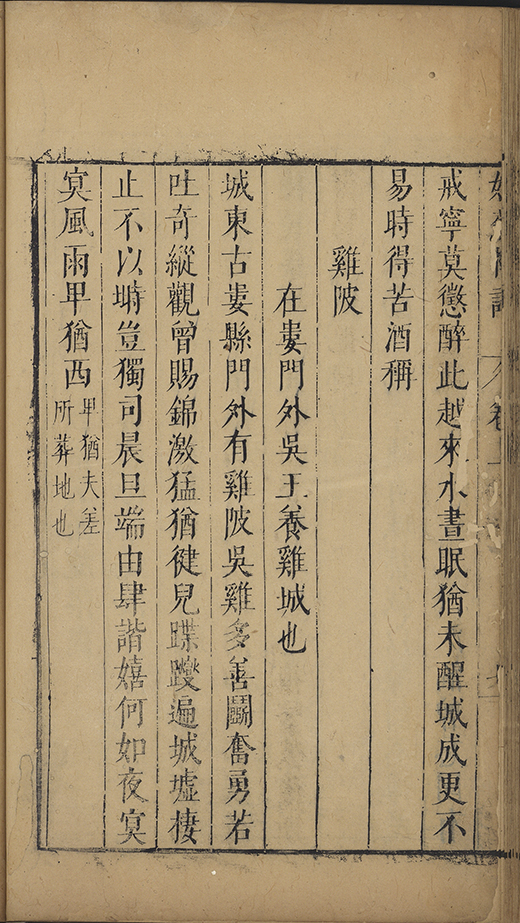 戒寧莫懲醉此越來水晝眠猶未醒城成更不
易時得苦酒稱
雞陂
在婁門外吳王養雞城也
城東古婁縣門外有雞陂吳雞多善鬭奮勇若
吐奇縱觀曾賜錦激猛猶徤兒蹀躞遍城墟棲
止不以塒豈獨司晨旦端由肆諧嬉何如夜㝠
㝠風雨甲猶西
甲猶夫差
所葬地也